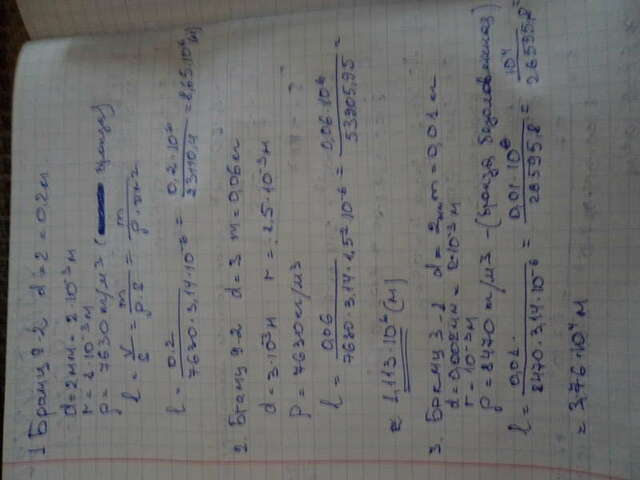 1 Брамц 9-2 d=2 = 0.2м
d=2мм=2·10⁻³м
r=1·10⁻³м
ρ=7630 кг/м³ (бронза)
l = V/S = m/ρ·S = m/ρ·πr²
l = 0.2/7630·3,14·10⁻⁶ = 0.2·10⁶/23110,4 = 8,65·10⁶(м)
2. Бгамц 9-2 d=3 m=0,06кг
d=3·10⁻³м r=1.5·10⁻³м
ρ=7630кг/м³
l = 0,06/7630·3,14·1,5²·10⁻⁶ = 0,06·10⁶/53905,95 =
≈ 1,113·10⁶(м)
3. Бркмц 3-1 d=2мм m=0,01кг
d=0,002м=2·10⁻³м
r=10⁻³м
ρ=8470 кг/м³ - (бронза безоловянная)
l = 0,01/8470·3,14·10⁻⁶ = 0,01·10⁶/26595,8 = 10⁴/26595,8 =
= 3,76·10⁴ м